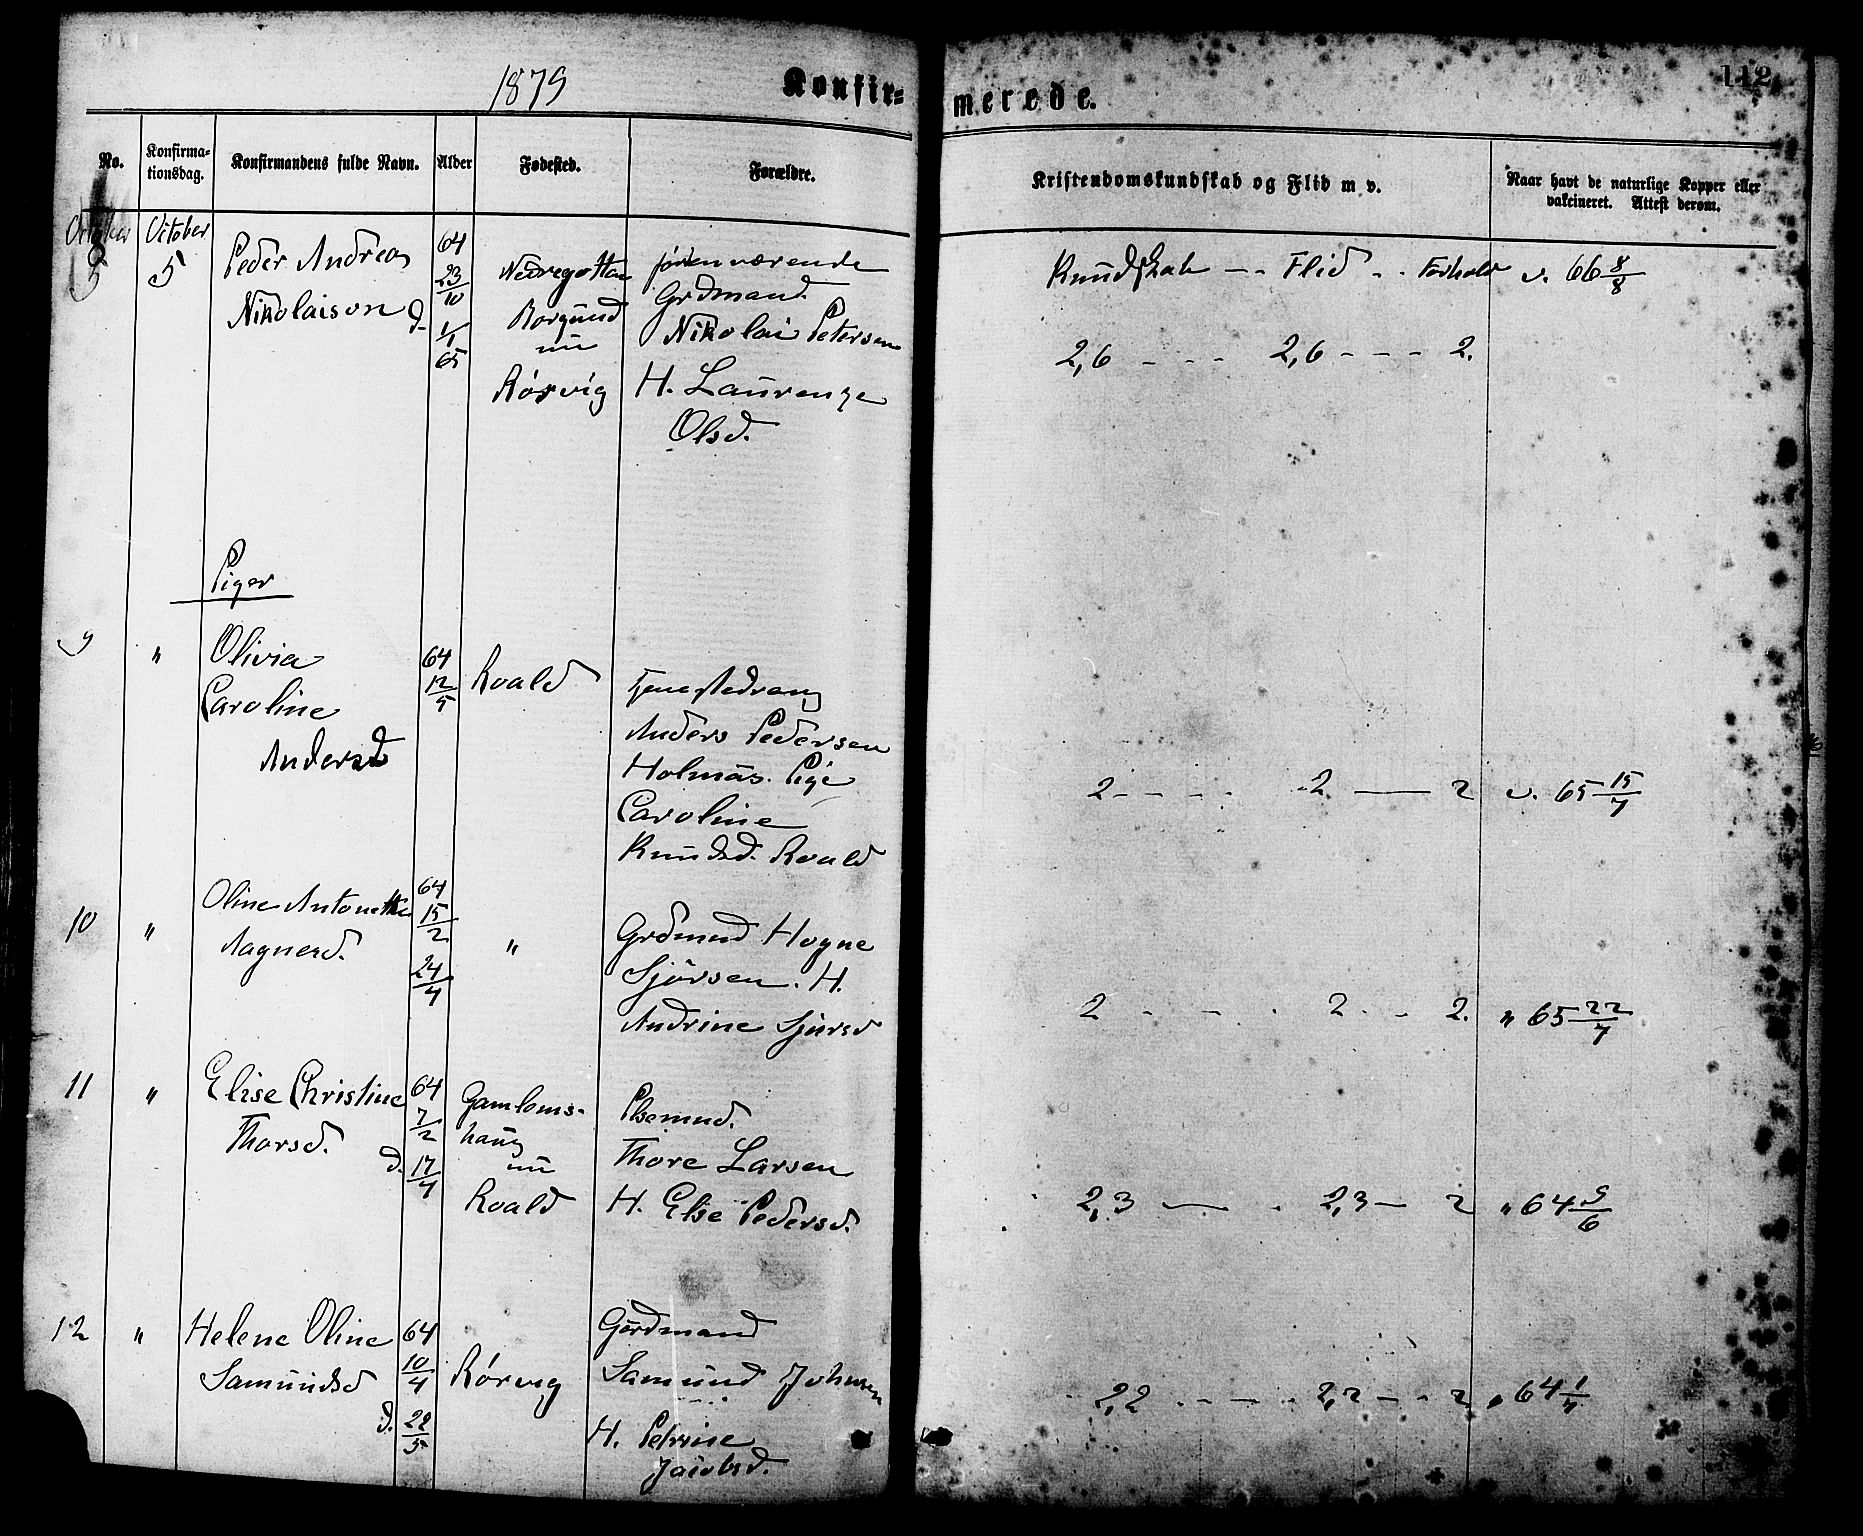 1879
Konfir=
merede.
112
No.
Konfirma-
tionsdag.
Konfirmandens fulde Navn.
Alder
Fødested.
Forældre.
Kristendomskundskab og Flid m v.
Naar havt de naturlige Kopper eller
vakcineret. Attest derom.
October
5
Peder Andreas
Nikolaison
d.
64
23/10
1/1
65
Borgund
nu
Rørvig
forrenværende
Grdmand.
Nikolai Petersen
H. Laurenze
Olsd.
Kundskab -- Flid -- Forhold
v. 66 8/8
2,6 - - - 2,6 - - - 2.
Piger
9 " Olivia
Caroline
Andersd
64
12/5
Roald
Anders Pedersen
Holmås. Pige
Caroline
Knudsd. Roald
2 - - - - 2 — 2
v. 65 15/7
10 " Oline Antonette
Aagnesd.
64
15/2
24/4
"
Grdmnd Hogne
Sjørsen. H.
Andrine Sjursd
2 - - - 2 - - 2.
" 65 22/7
11 " Elise Christine
Thorsd.
d.
64
7/2
17/4
Gamlems-
haug
nu
Roald
Plsmnd.
Thore Larsen
H. Else Pedersd.
2,3 — - 2,3 — 2
" 64 9/6
12 " Helene Oline
Samundsd
d.
64
10/4
22/5
Rørvig
Gårdmand
Samund Johnsen
H. Petrine
Jacobsd.
2,2 - - - - 2,2 - - 2
" 64 1/7